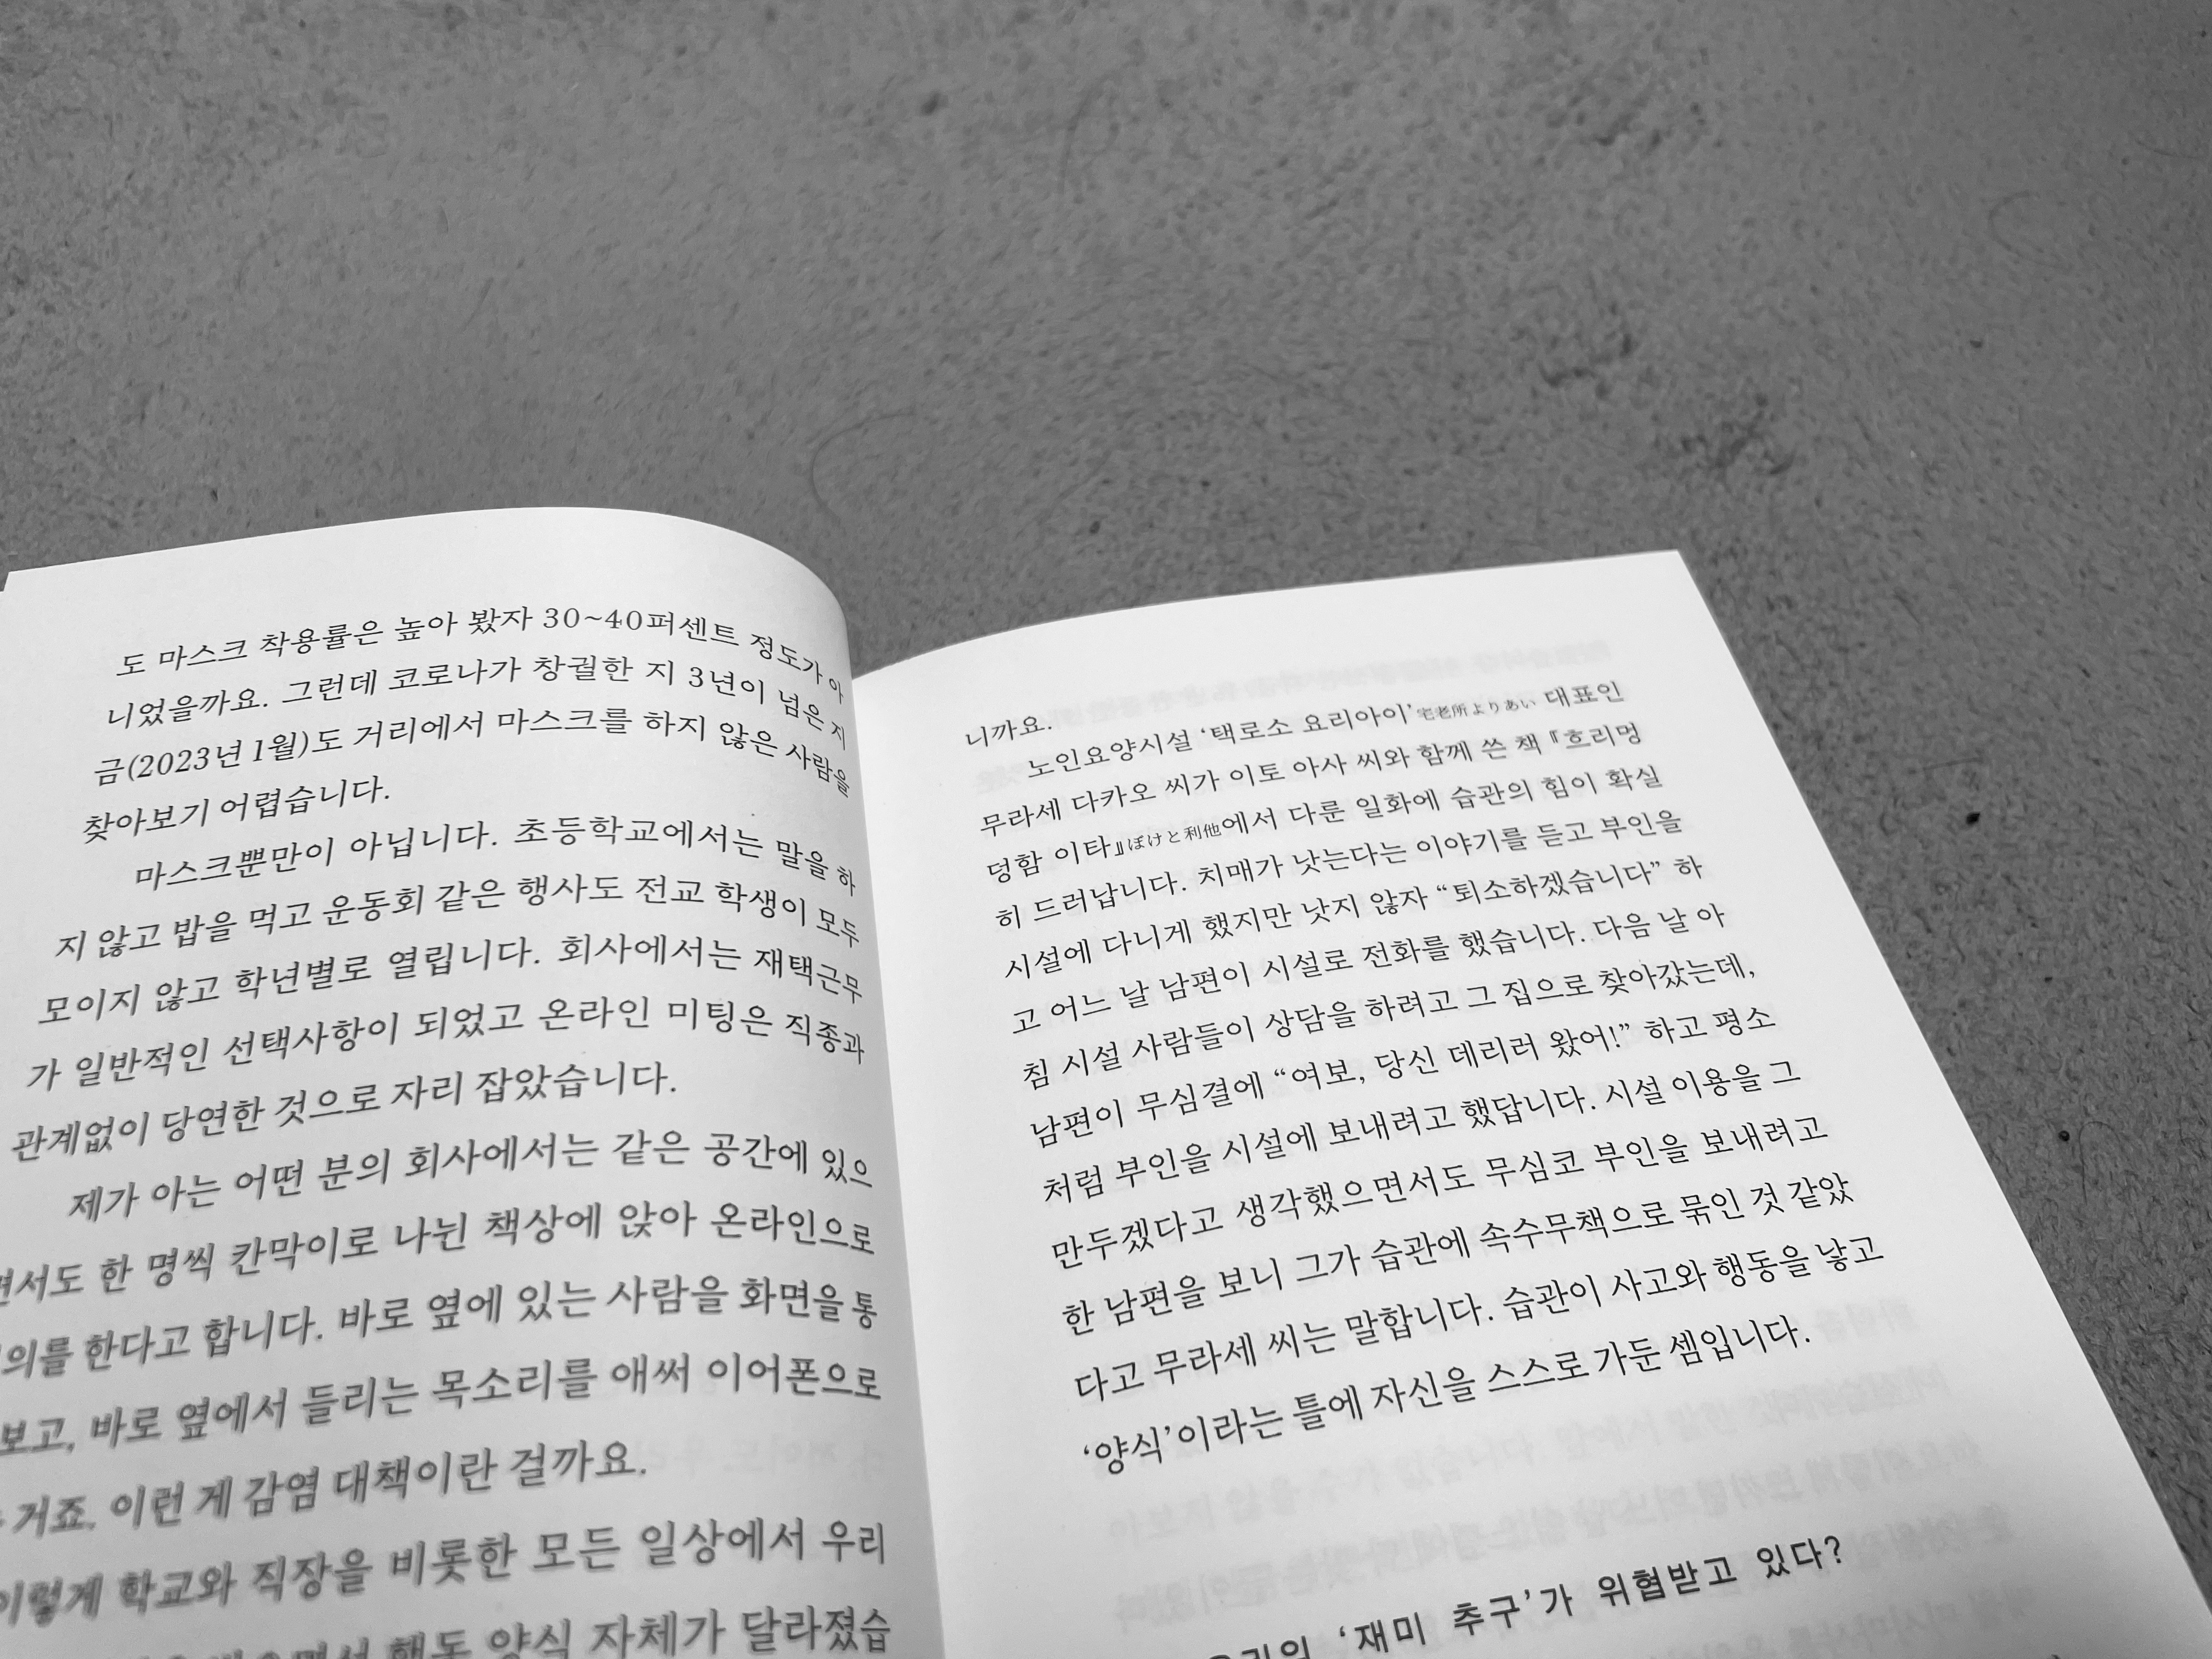 도 마스크 착용률은 높아 봤자 30~40퍼센트 정도가 아
니었을까요. 그런데 코로나가 창궐한 지 3년이 넘은 지
금(2023년 1월)도 거리에서 마스크를 하지 않은 사람을
찾아보기 어렵습니다.
마스크뿐만이 아닙니다. 초등학교에서는 말을 하
지 않고 밥을 먹고 운동회 같은 행사도 전교 학생이 모두
모이지 않고 학년별로 열립니다. 회사에서는 재택근무
가 일반적인 선택사항이 되었고 온라인 미팅은 직종과
관계없이 당연한 것으로 자리 잡았습니다.
제가 아는 어떤 분의 회사에서는 같은 공간에 있으
면서도 한 명씩 칸막이로 나뉜 책상에 앉아 온라인으로
의를 한다고 합니다. 바로 옆에 있는 사람을 화면을 통
보고, 바로 옆에서 들리는 목소리를 애써 이어폰으로
거죠. 이런 게 감염 대책이란 걸까요.
이렇게 학교와 직장을 비롯한 모든 일상에서 우리
행동 양식 자체가 달라졌습
니까요.
노인요양시설 ‘택로소 요리아이’宅老所よりあい 대표인
무라세 다카오 씨가 이토 아사 씨와 함께 쓴 책 『흐리멍
덩함 이타』ぼけと利他에서 다룬 일화에 습관의 힘이 확실
히 드러납니다. 치매가 낫는다는 이야기를 듣고 부인을
시설에 다니게 했지만 낫지 않자 “퇴소하겠습니다” 하
고 어느 날 남편이 시설로 전화를 했습니다. 다음 날 아
침 시설 사람들이 상담을 하려고 그 집으로 찾아갔는데,
남편이 무심결에 “여보, 당신 데리러 왔어!” 하고 평소
처럼 부인을 시설에 보내려고 했답니다. 시설 이용을 그
만두겠다고 생각했으면서도 무심코 부인을 보내려고
한 남편을 보니 그가 습관에 속수무책으로 묶인 것 같았
다고 무라세 씨는 말합니다. 습관이 사고와 행동을 낳고
‘양식’이라는 틀에 자신을 스스로 가둔 셈입니다.
우리의 ‘재미 추구’가 위협받고 있다?